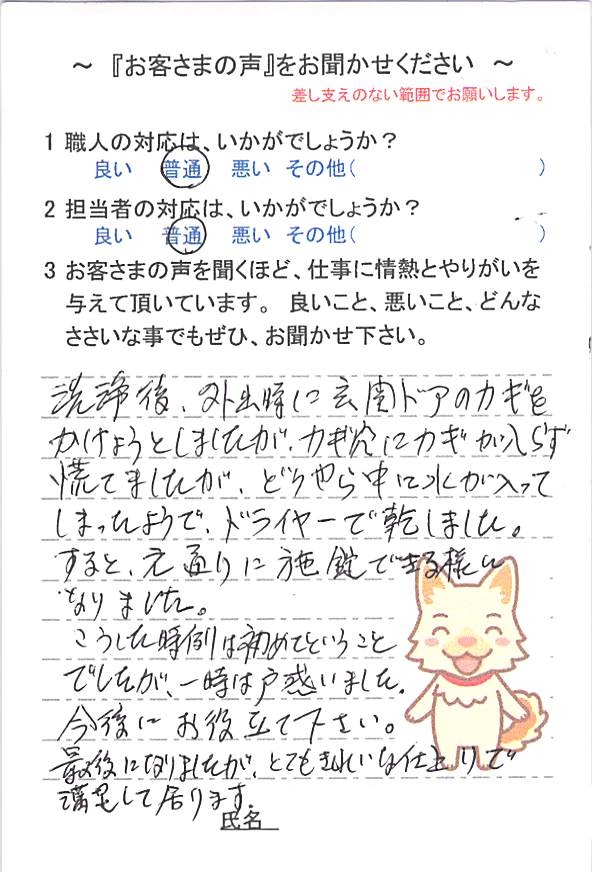 ～ 『お客さまの声』をお聞かせください ～
差し支えのない範囲でお願いします。
1 職人の対応は、いかがでしょうか？
良い 普通 悪い その他( )
2 担当者の対応は、いかがでしょうか？
良い 普通 悪い その他( )
3 お客さまの声を聞くほど、仕事に情熱とやりがいを
与えて頂いています。 良いこと、悪いこと、どんな
ささいな事でもぜひ、お聞かせ下さい。
洗浄後、外出時に玄関ドアのカギを
かけようとしましたが、カギ穴にカギが入らず
慌てましたが、どうやら中に水が入って
しまったようで、ドライヤーで乾しました。
すると、元通りに施錠できる様に
なりました。
こうした時例は初めてということ
でしたが、一時は戸惑いました。
今後にお役立て下さい。
最後になりましたが、とてもきれいな仕上りで
満足して居ります。
氏名